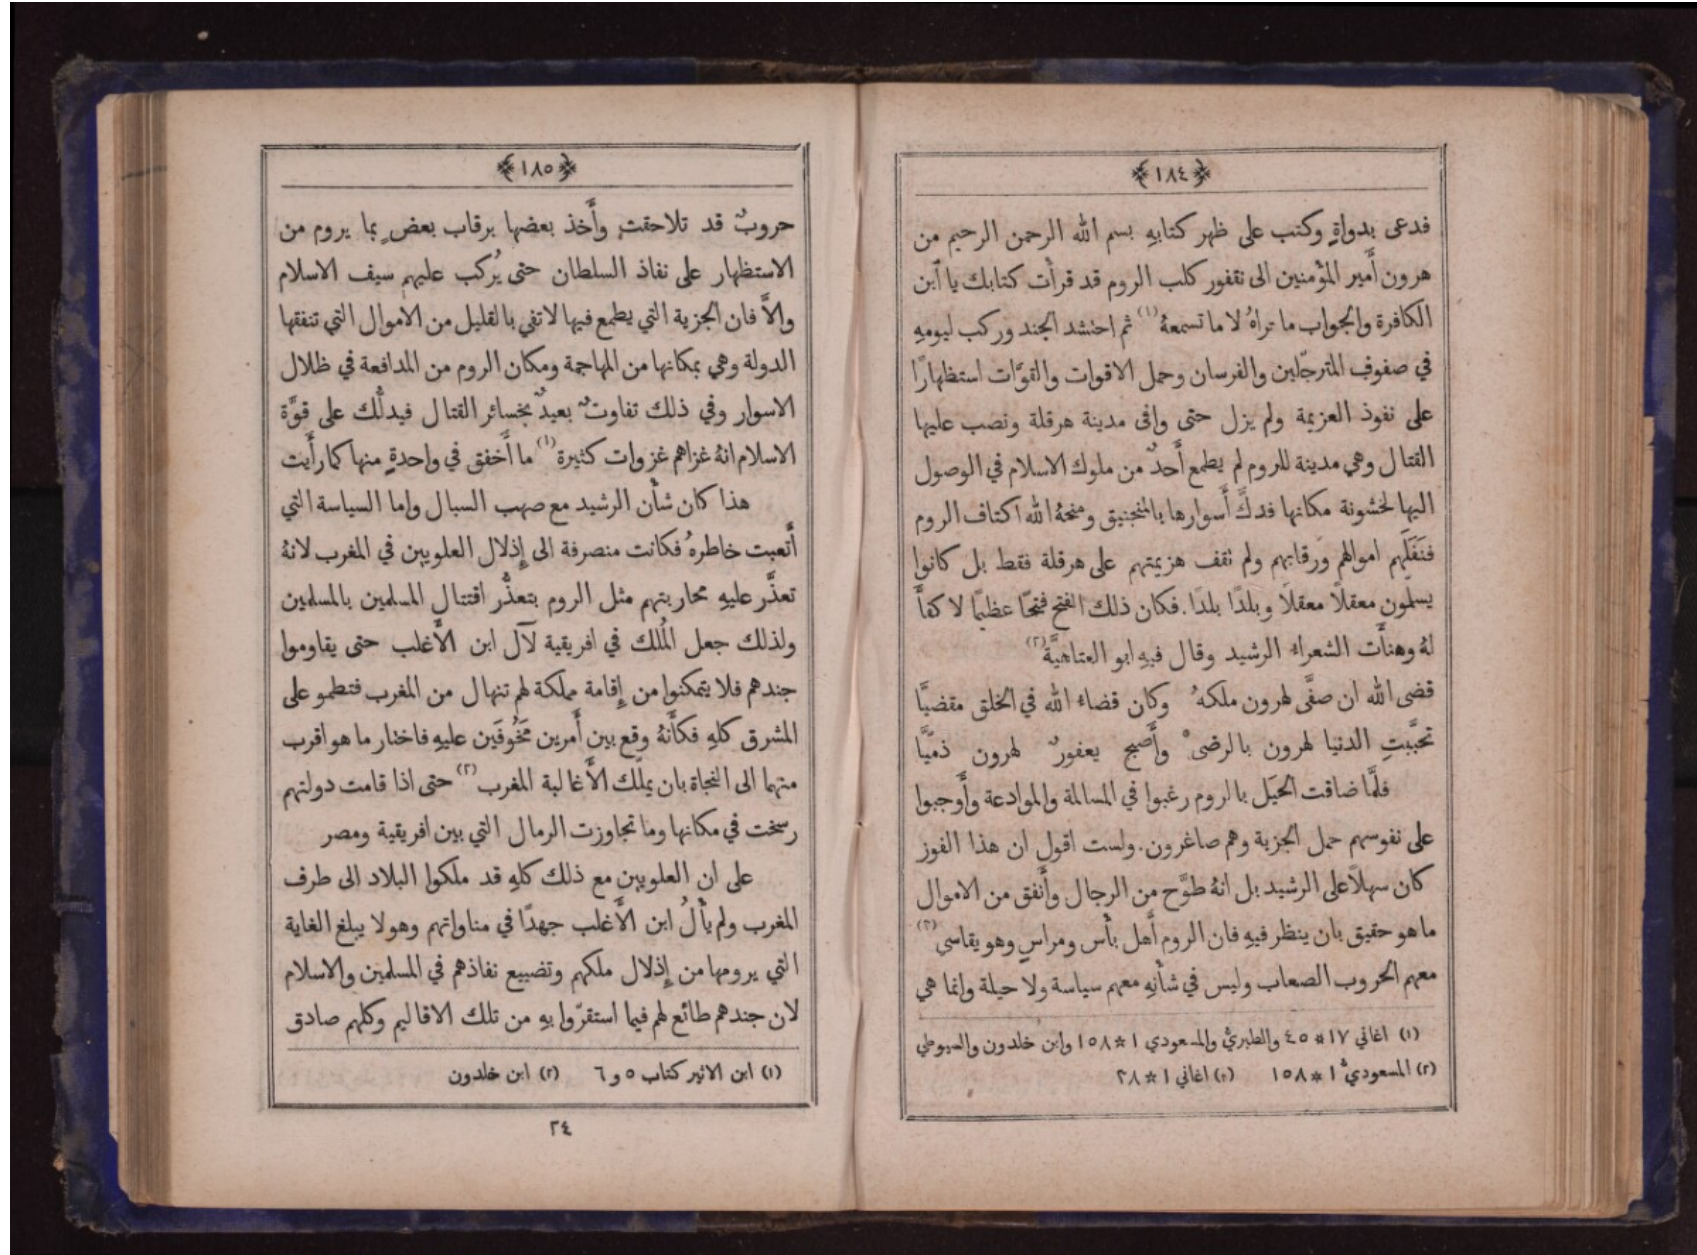 ﴿١٨٤﴾
فدعى بدواةٍ وكتب على ظهر كتابهِ بسم الله الرحمن الرحيم من
هرون أَمير المؤْمنين الى نقفور كلب الروم قد قرأْت كتابك يا ٱبن
الكافرة والجواب ما تراهُ لا ما تسمعهُ (١) ثم احنشد الجند وركب ليومهِ
في صفوف المترجّلين والفرسان وحمل الاقوات والقوَّات استظهارًا
على نفوذ العزيمة ولم يزل حتى وافى مدينة هرقلة ونصب عليها
القتال وهي مدينة للروم لم يطمع أَحدٌ من ملوك الاسلام في الوصول
اليها لخشونة مكانها فدكَّ أَسوارها بالمنجنيق ومنحهُ الله اكتاف الروم
فنَفَلَهم اموالهم ورقابهم ولم نقف هزيمتهم على هرقلة فقط بل كانوا
يسلمون معقلًا معقلًا وبلدًا بلدًا. فكان ذلك الفتح فتحًا عظيمًا لا كفأَ
لهُ وهنأَت الشعراءُ الرشيد وقال فيهِ ابو العتاهيَّة (٢)
قضى الله ان صفَّى لهرون ملكهُ وكان قضاءُ الله في الخلق مقضيَّا
تحبَّبتِ الدنيا لهرون بالرضى وأَصبح يعفورٌ لهرون ذميَّا
فلمَّا ضاقت الحيَل بالروم رغبوا في المسالمة والموادعة وأَوجبوا
على نفوسهم حمل الجزية وهم صاغرون. ولست اقول ان هذا الفوز
كان سهلًا على الرشيد بل انهُ طوَّح من الرجال وأَنفق من الاموال
ما هو حقيق بان ينظر فيهِ فان الروم أَهل بأْس ومراسٍ وهو يقاسي (٣)
معهم الحروب الصعاب وليس في شأْنهِ معهم سياسة ولا حيلة وانما هي
(١) اغاني ١٧ * ٤٥ والطبريُّ والمسعودي ١ * ١٥٨ وابن خلدون والسيوطي
(٢) المسعوديُّ ١ * ١٥٨ (٣) اغاني ١ * ٢٨
﴿١٨٥﴾
حروبٌ قد تلاحقت وأَخذ بعضها برقاب بعضٍ بما يروم من
الاستظهار على نفاذ السلطان حتى يُركب عليهم سيف الاسلام
والاَّ فان الجزية التي يطمع فيها لا تفي بالقليل من الاموال التي تنفقها
الدولة وهي بمكانها من المهاجمة ومكان الروم من المدافعة في ظلال
الاسوار وفي ذلك تفاوتٌ بعيدٌ بخسائر القتال فيدلُّك على قوَّة
الاسلام انهُ غزاهم غزوات كثيرة (١) ما أَخفق في واحدةٍ منها كما رأَيت
هذا كان شأْن الرشيد مع صهب السبال واما السياسة التي
أَتعبت خاطرهُ فكانت منصرفة الى إِذلال العلويين في المغرب لانهُ
تعذَّر عليهِ محاربتهم مثل الروم بتعذُّر اقتتال المسلمين بالمسلمين
ولذلك جعل المُلك في افريقية لآل ابن الأَغلب حتى يقاوموا
جندهم فلا يتمكنوا من إِقامة مملكة لهم تنهال من المغرب فتطمو على
المشرق كلهِ فكأَنهُ وقع بين أَمرين مَخُوفَين عليهِ فاخنار ما هو اقرب
منهما الى النجاة بان يملّك الأَغالبة المغرب (٢) حتى اذا قامت دولتهم
رسخت في مكانها وما تجاوزت الرمال التي بين افريقية ومصر
على ان العلويين مع ذلك كلهِ قد ملكوا البلاد الى طرف
المغرب ولم يأْلُ ابن الأَغلب جهدًا في مناواتهم وهو لا يبلغ الغاية
التي يرومها من إِذلال ملكهم وتضييع نفاذهم في المسلمين والاسلام
لان جندهم طائع لهم فيما استقرّوا بهِ من تلك الاقاليم وكلهم صادق
(١) ابن الاثير كتاب ٥ و ٦ (٢) ابن خلدون
٢٤